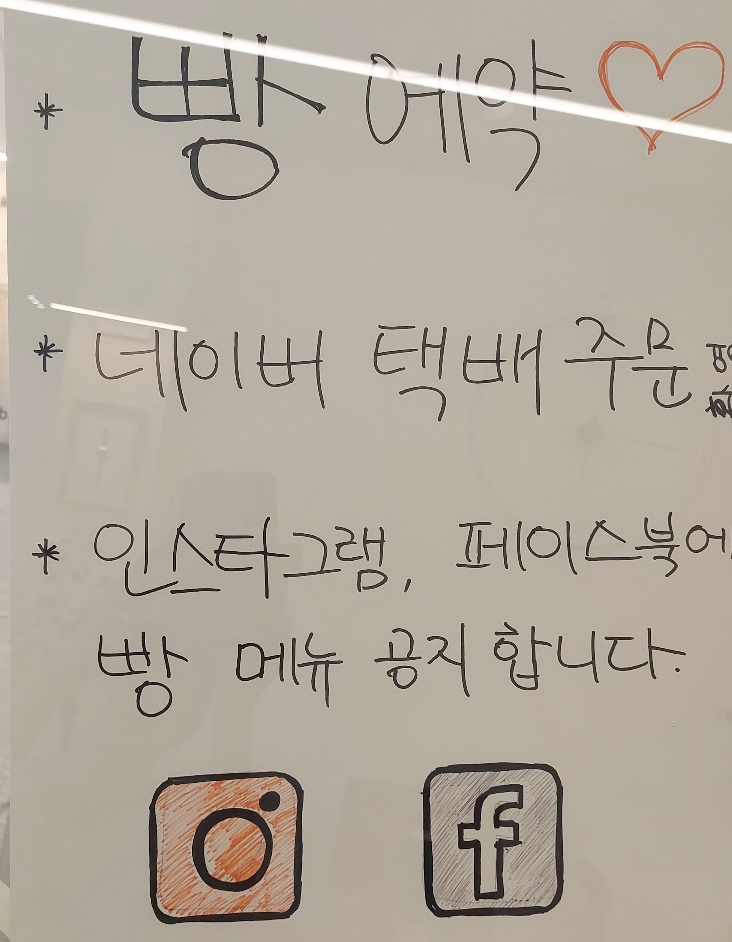 * 빵 예약 ♡
* 네이버 택배 주문
* 인스타그램, 페이스북에
빵 메뉴 공지 합니다.
f